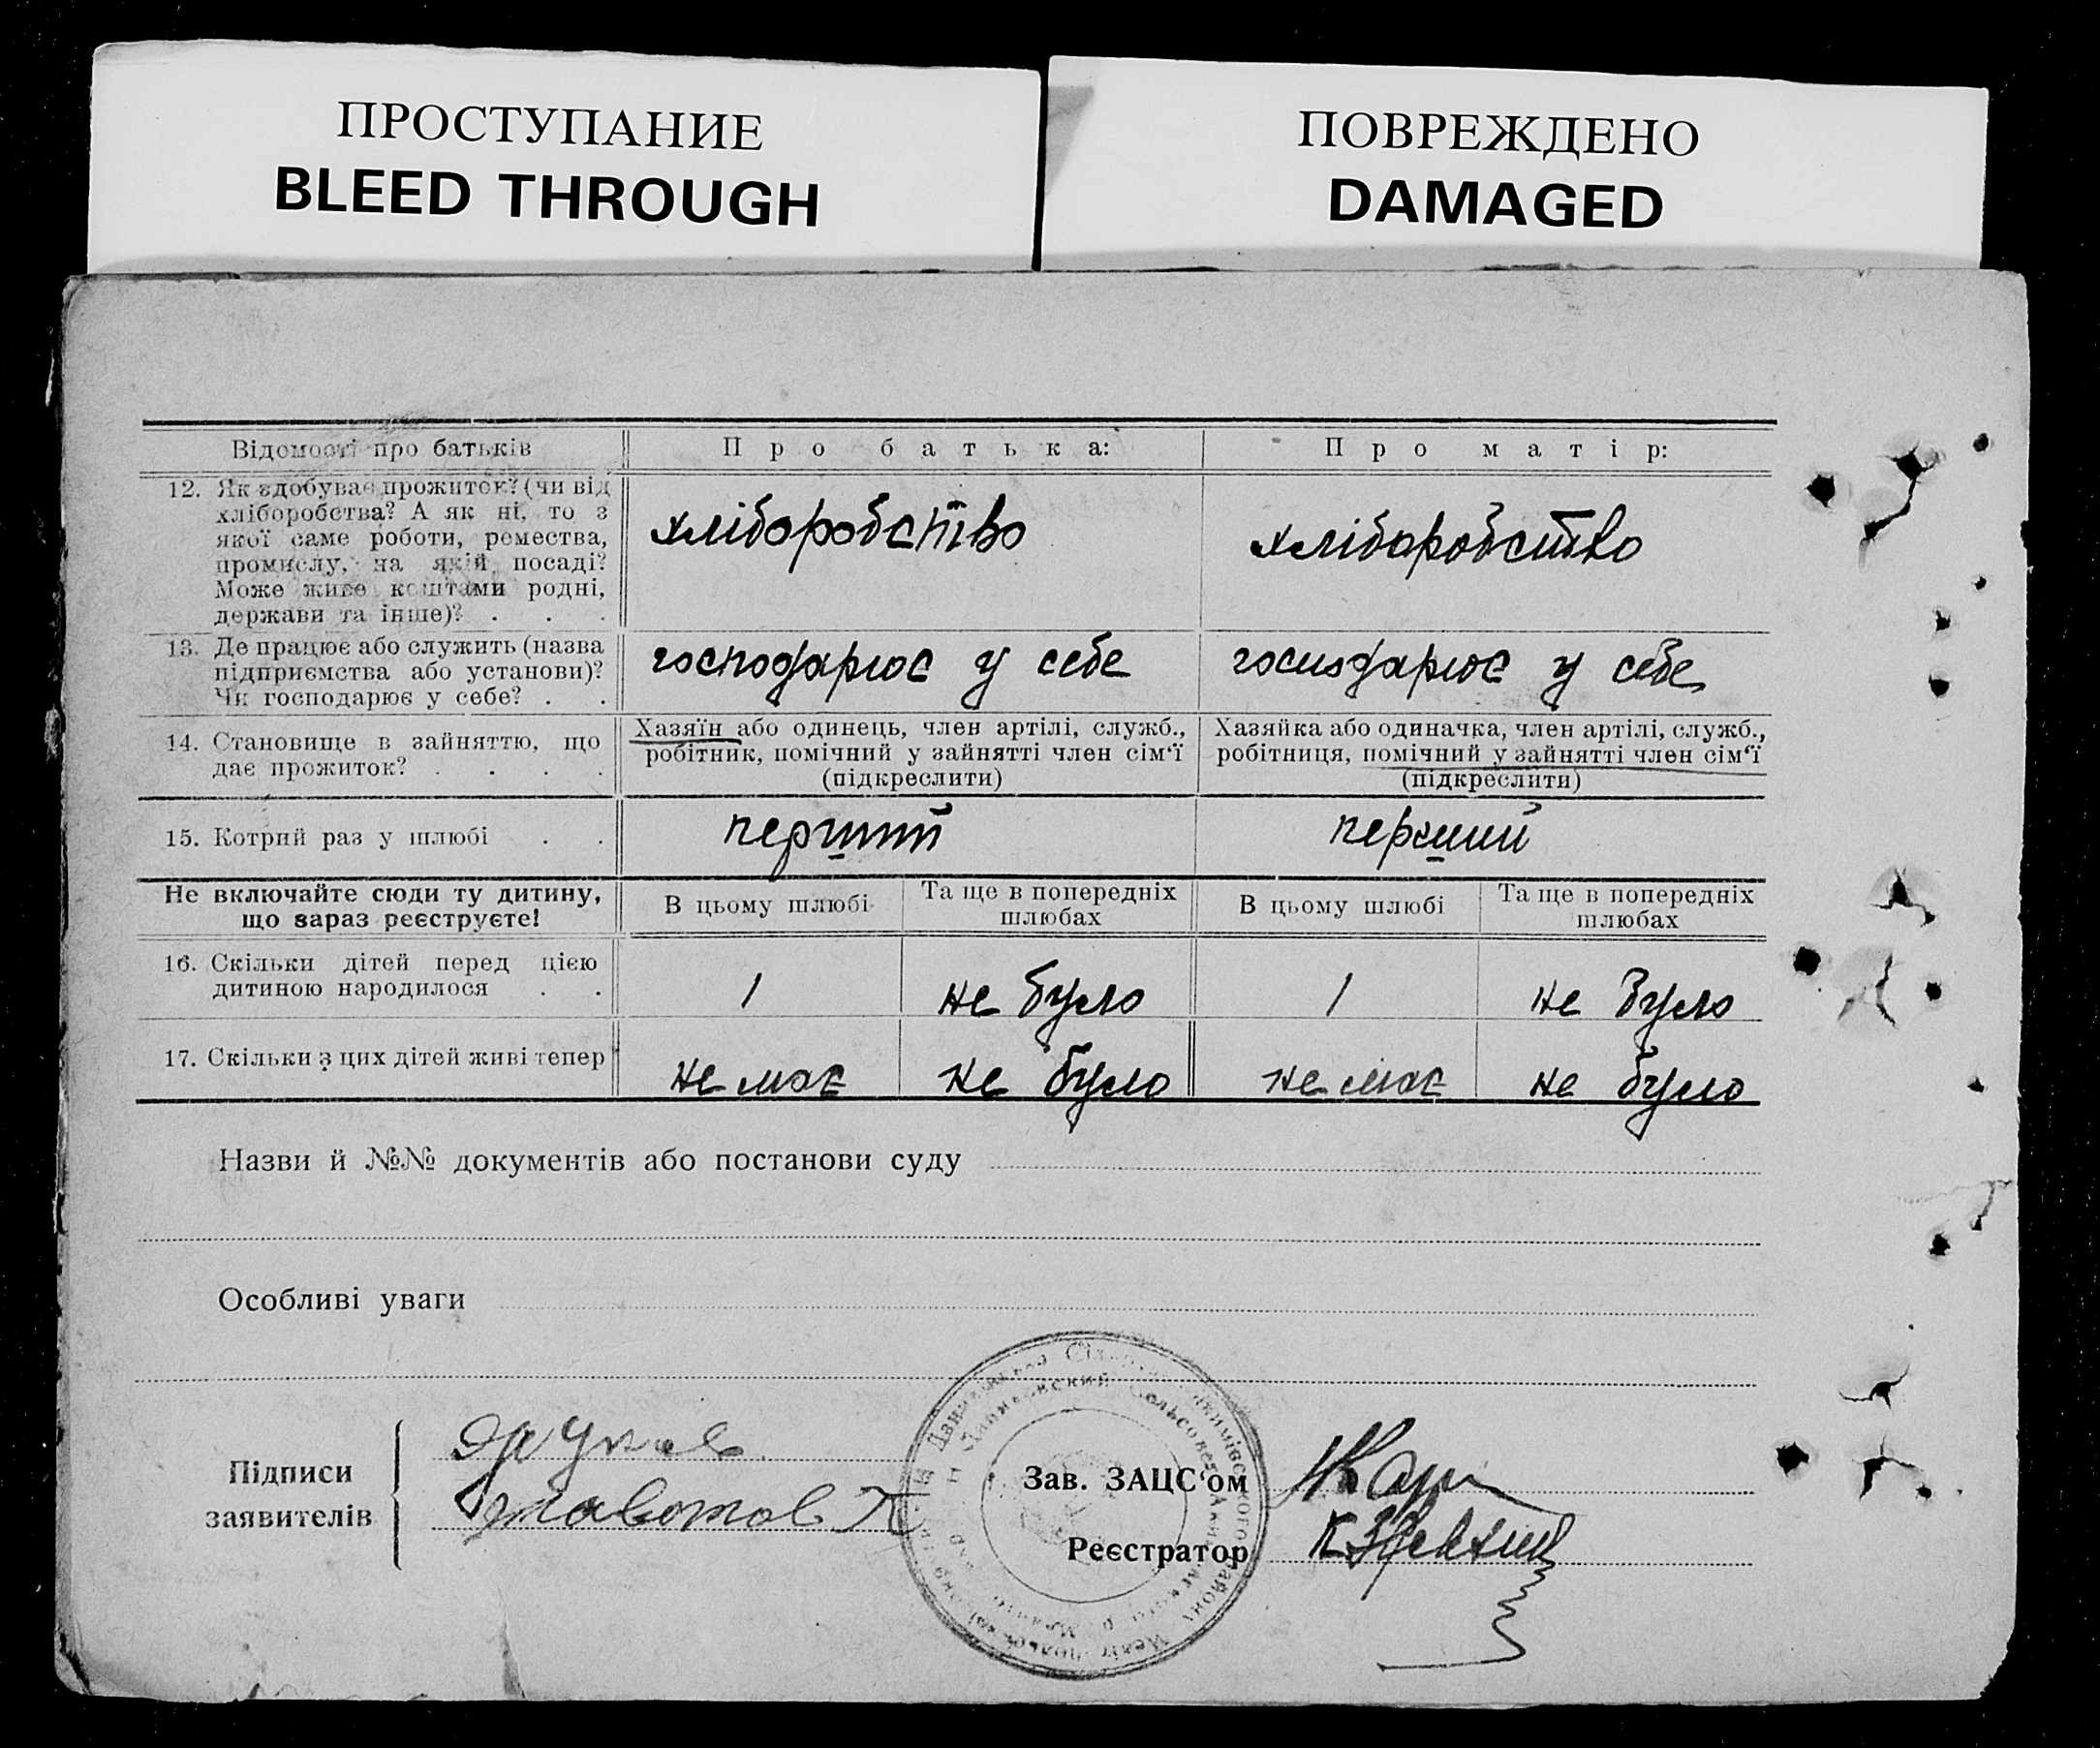 ПРОСТУПАНИЕ
BLEED THROUGH
ПОВРЕЖДЕНО
DAMAGED
Відомості про батьків
Про батька:
Про матір:
12. Як здобуває прожиток? (чи від
хліборобства? А як ні, то з
якої саме роботи, ремества,
промислу, на якій посаді?
Може живе коштами родні,
держави та інше)? . . .
хліборобство
хліборобство
13. Де працює або служить (назва
підприємства або установи)?
Чи господарює у себе? . .
господарює у себе
господарює у себе
14. Становище в зайняттю, що
дає прожиток? . . . .
Хазяїн або одинець, член артілі, служб.,
робітник, помічний у зайнятті член сім‘ї
(підкреслити)
Хазяйка або одиначка, член артілі, служб.,
робітниця, помічний у зайнятті член сім‘ї
(підкреслити)
15. Котрий раз у шлюбі . .
перший
перший
Не включайте сюди ту дитину,
що зараз реєструєте!
В цьому шлюбі
Та ще в попередніх
шлюбах
В цьому шлюбі
Та ще в попередніх
шлюбах
16. Скільки дітей перед цією
дитиною народилося . .
1
не було
1
не було
17. Скільки з цих дітей живі тепер
не має
не було
не має
не було
Назви й №№ документів або постанови суду
Особливі уваги
Підписи
заявителів
Зав. ЗАЦС‘ом
Реєстратор